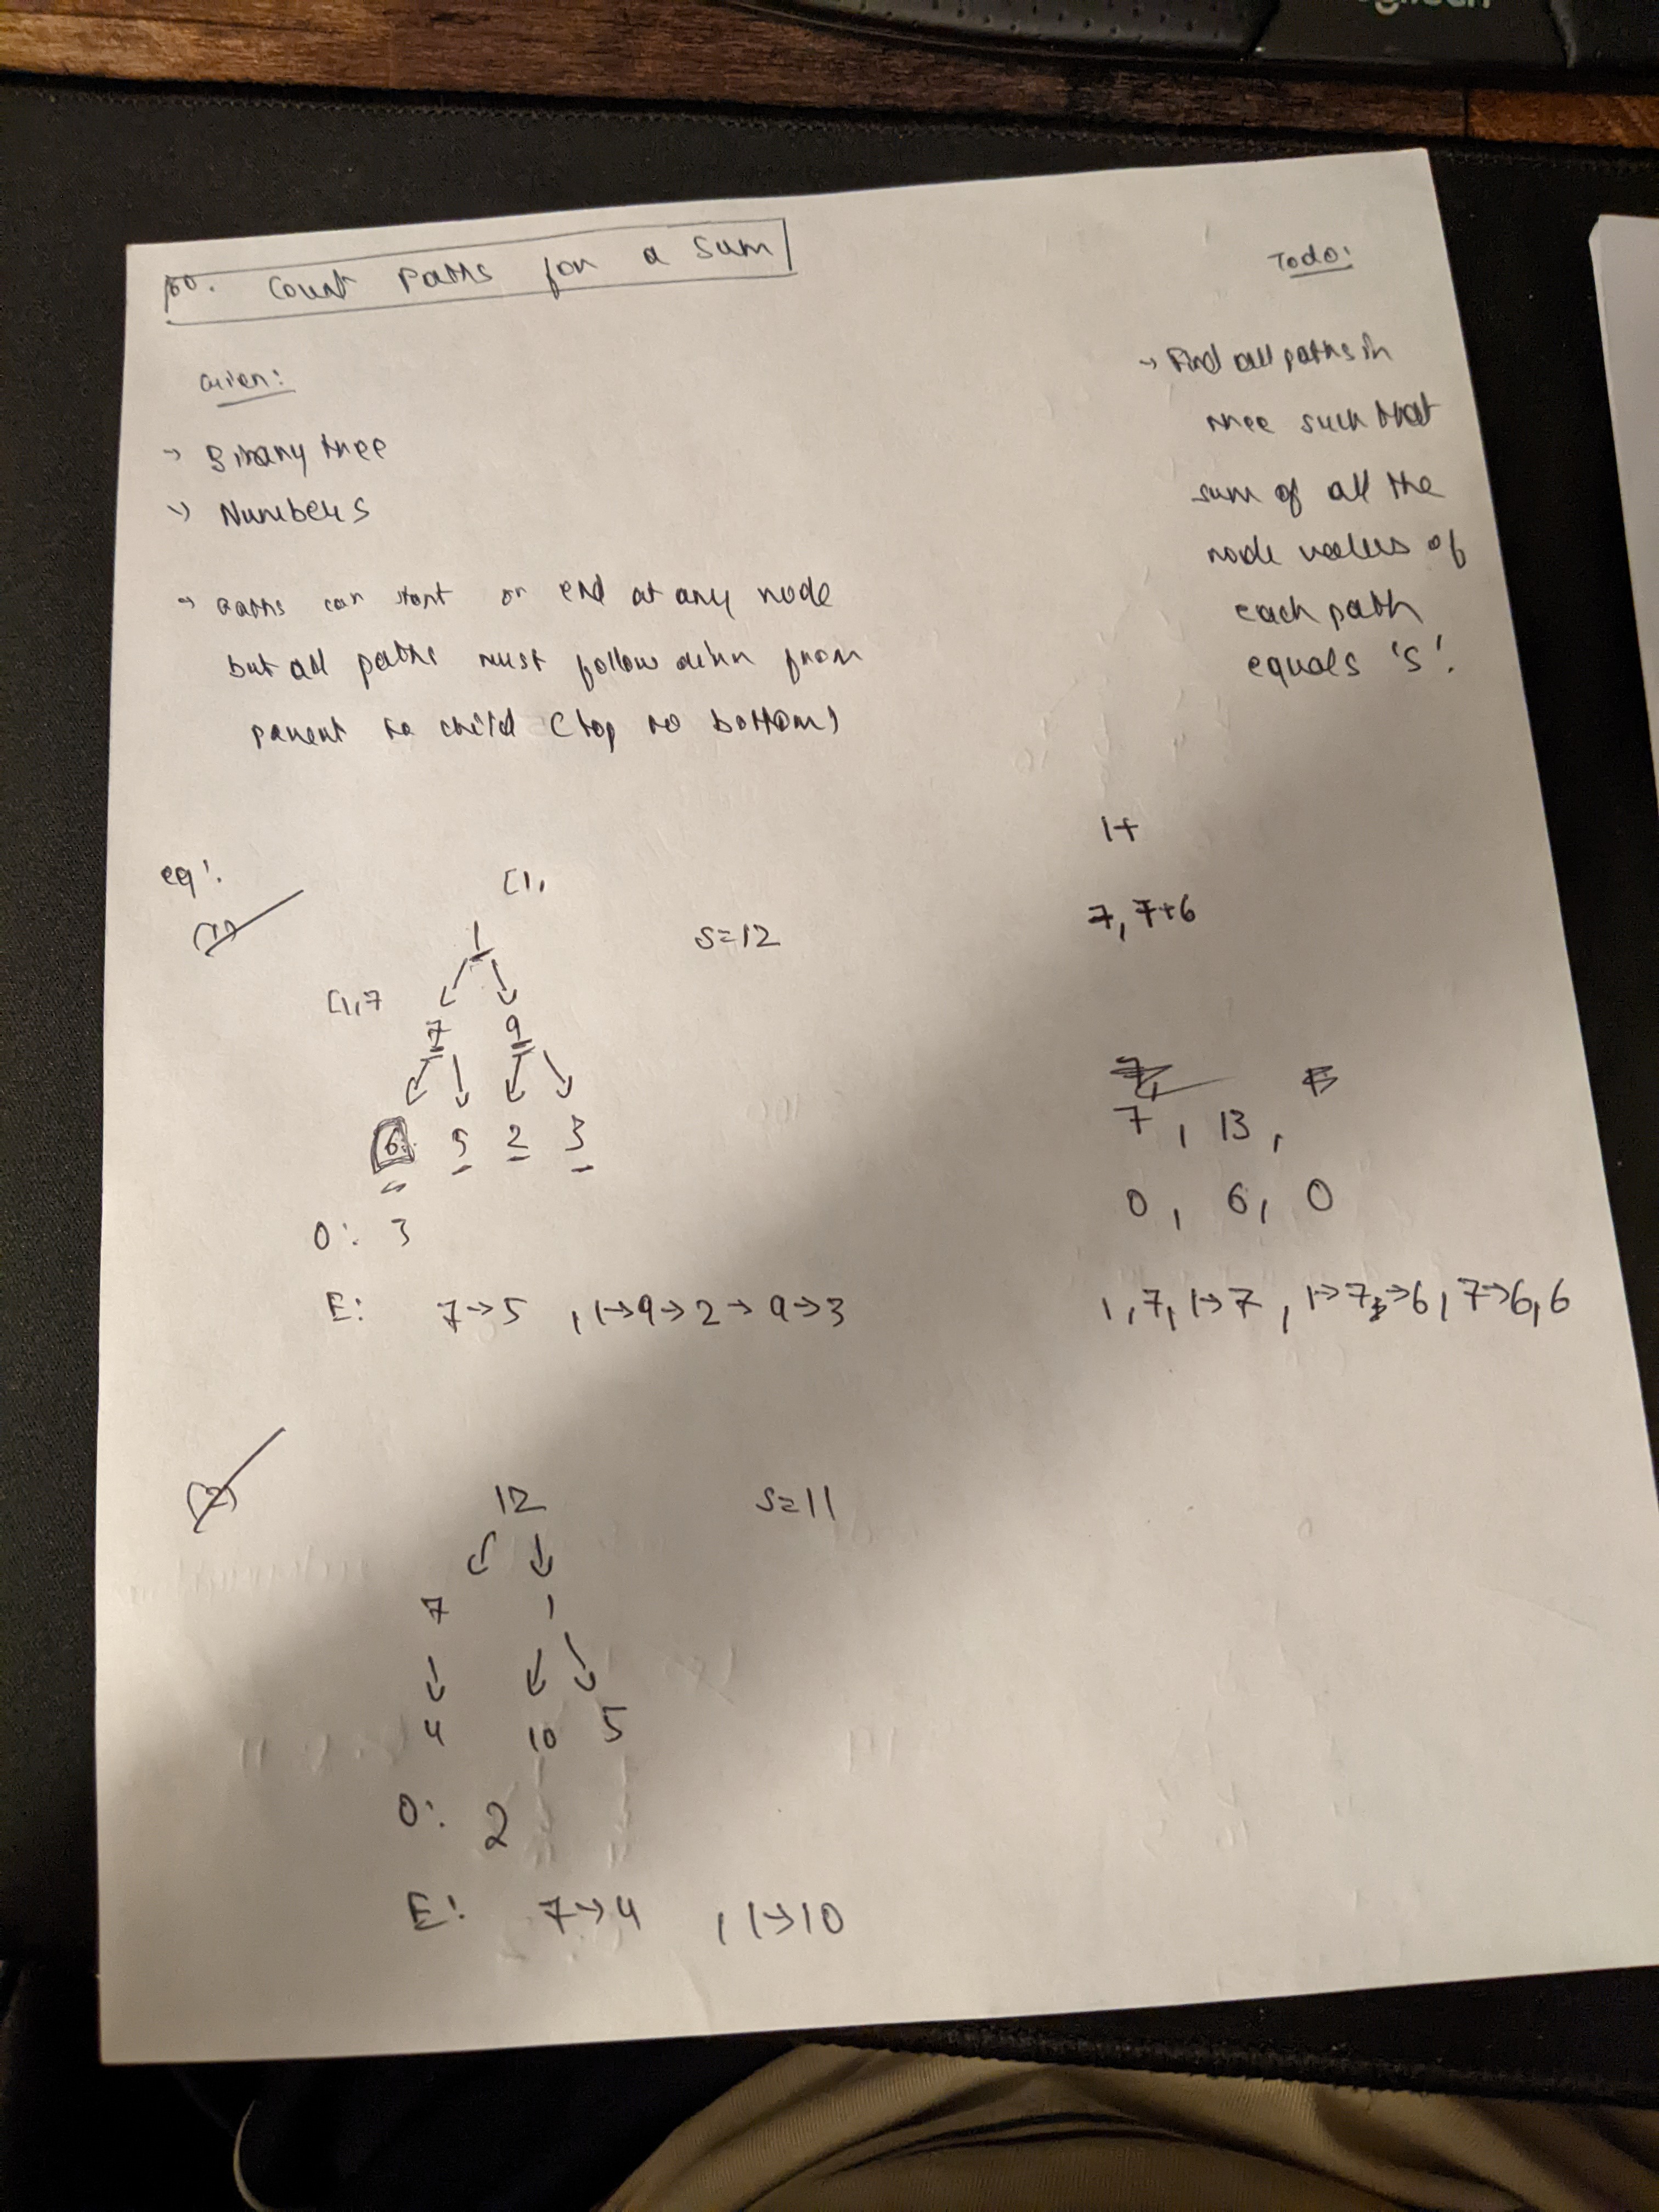 Count Paths for a Sum
Todo:
Given:
→ Binary tree
→ Number S
→ Paths can start or end at any node
but all paths must follow dirn from
parent to child (top to bottom)
→ Find all paths in
tree such that
sum of all the
node values of
each path
equals 'S'.
eg:
(1)
[1,
1
S=12
[1,7
7 9
6 5 2 3
O: 3
E: 7→5 , 1→9→2→9→3
1+
7, 7+6
7, 13,
0, 6, 0
1, 7, 1→7, 1→7→6, 7→6, 6
(2)
12
S=11
7 1
4 10 5
O: 2
E: 7→4 , 1→10